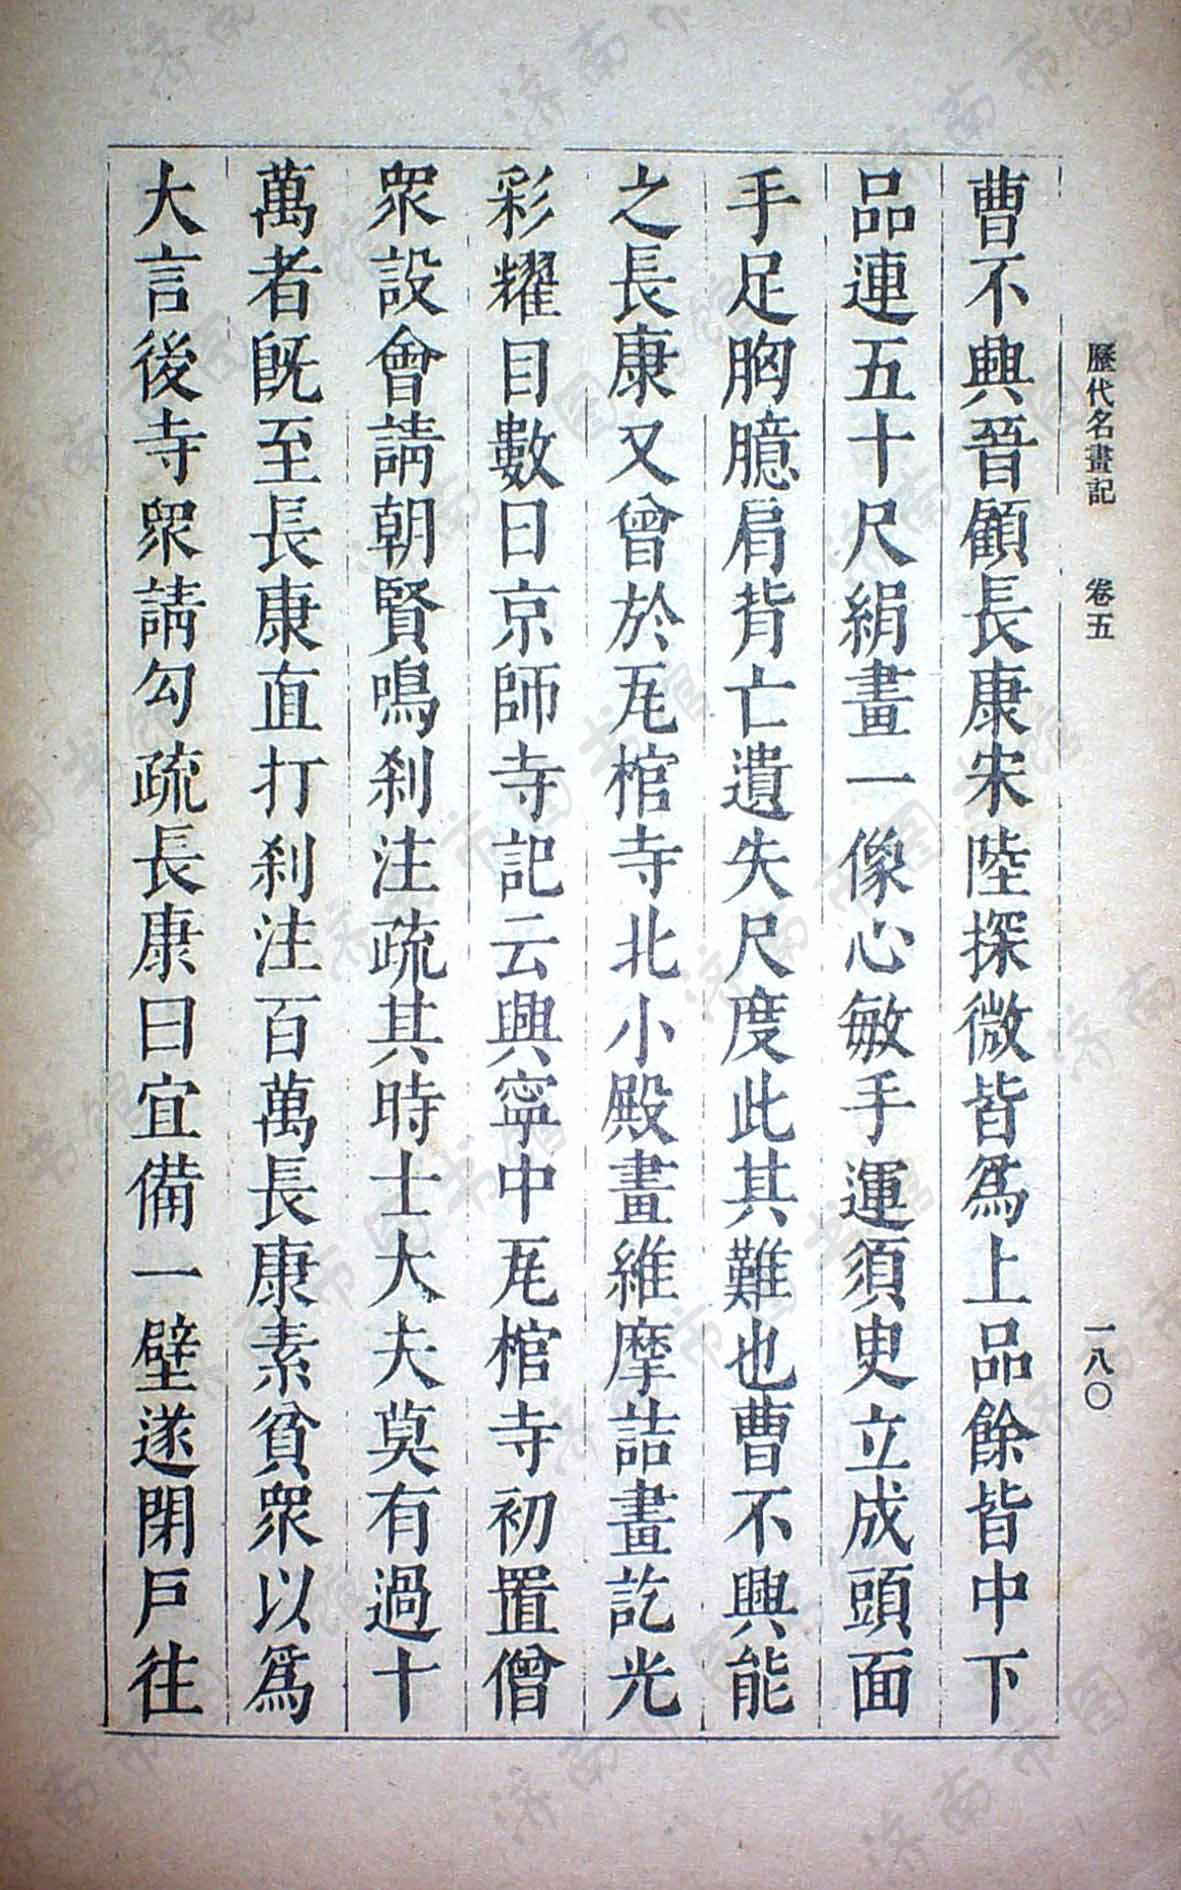 歷代名畫記　卷五　一八〇
曹不興晉顧長康宋陸探微皆爲上品餘皆中下
品連五十尺絹畫一像心敏手運須臾立成頭面
手足胸臆肩背亡遺失尺度此其難也曹不興能
之長康又曾於瓦棺寺北小殿畫維摩詰畫訖光
彩耀目數日京師寺記云興寧中瓦棺寺初置僧
眾設會請朝賢鳴刹注疏其時士大夫莫有過十
萬者既至長康直打刹注百萬長康素貧眾以爲
大言後寺眾請勾疏長康曰宜備一壁遂閉戶往